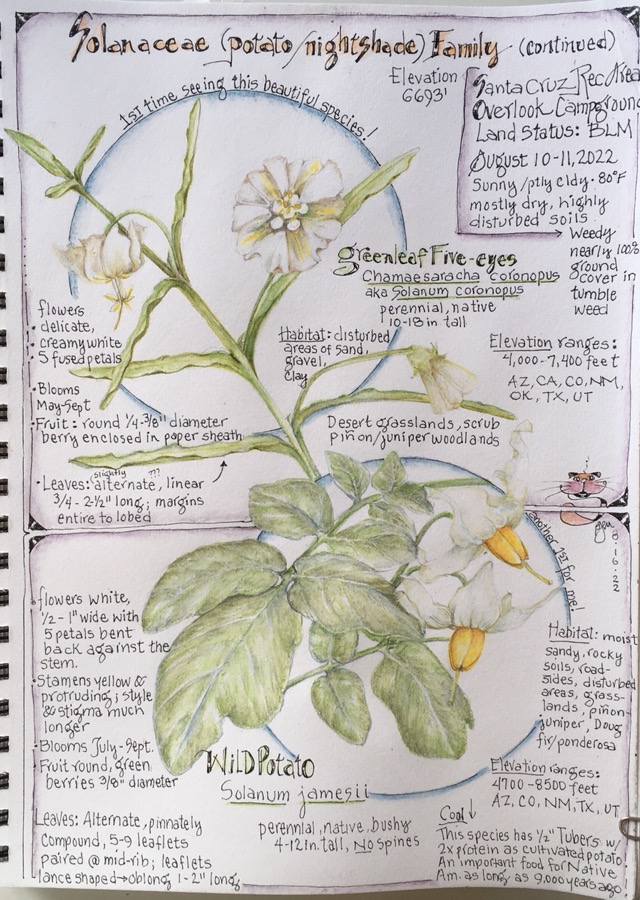 Solanaceae (potato/nightshade) Family (continued)
1st time seeing this beautiful species!
Elevation
6693'
Santa Cruz Rec Area
Overlook Campground
Land Status: BLM
August 10-11, 2022
Sunny/ptly cldy. 80°F
mostly dry, highly
disturbed soils
Weedy
nearly 100%
ground
cover in
tumble
weed
greenleaf Five-eyes
Chamaesaracha coronopus
aka Solanum coronopus
perennial, native
10-18 in tall
flowers
delicate,
creamy white
5 fused petals
• Blooms
May-Sept
• Fruit: round 1/4-3/8" diameter
berry enclosed in paper sheath
• Leaves: slightly ???
alternate, linear
3/4 - 2-1/2" long; margins
entire to lobed
Habitat: disturbed
areas of sand,
gravel,
clay
Desert grasslands, scrub
piñon/juniper woodlands
Elevation ranges:
4,000-7,400 feet
AZ, CA, CO, NM,
OK, TX, UT
another 1st for me!
8
16
22
• flowers white,
1/2 - 1" wide with
5 petals bent
back against the
stem.
• Stamens yellow &
protruding; style
& stigma much
longer
• Blooms July-Sept.
• Fruit round, green
berries 3/8" diameter
Leaves: Alternate, pinnately
Compound, 5-9 leaflets
paired @ mid-rib; leaflets
lance shaped→oblong 1-2" long
Wild Potato
Solanum jamesii
perennial, native, bushy
4-12 in. tall, No Spines
Habitat: moist
sandy, rocky
soils, road-
sides, disturbed
areas, grass-
lands, piñon-
juniper, Doug
fir/ponderosa
Elevation ranges:
4700-8500 feet
AZ, CO, NM, TX, UT
Cool ↓
This species has 1/2" Tubers w/
2x protein as cultivated potato.
An important food for Native
Am. as long as 9,000 years ago!